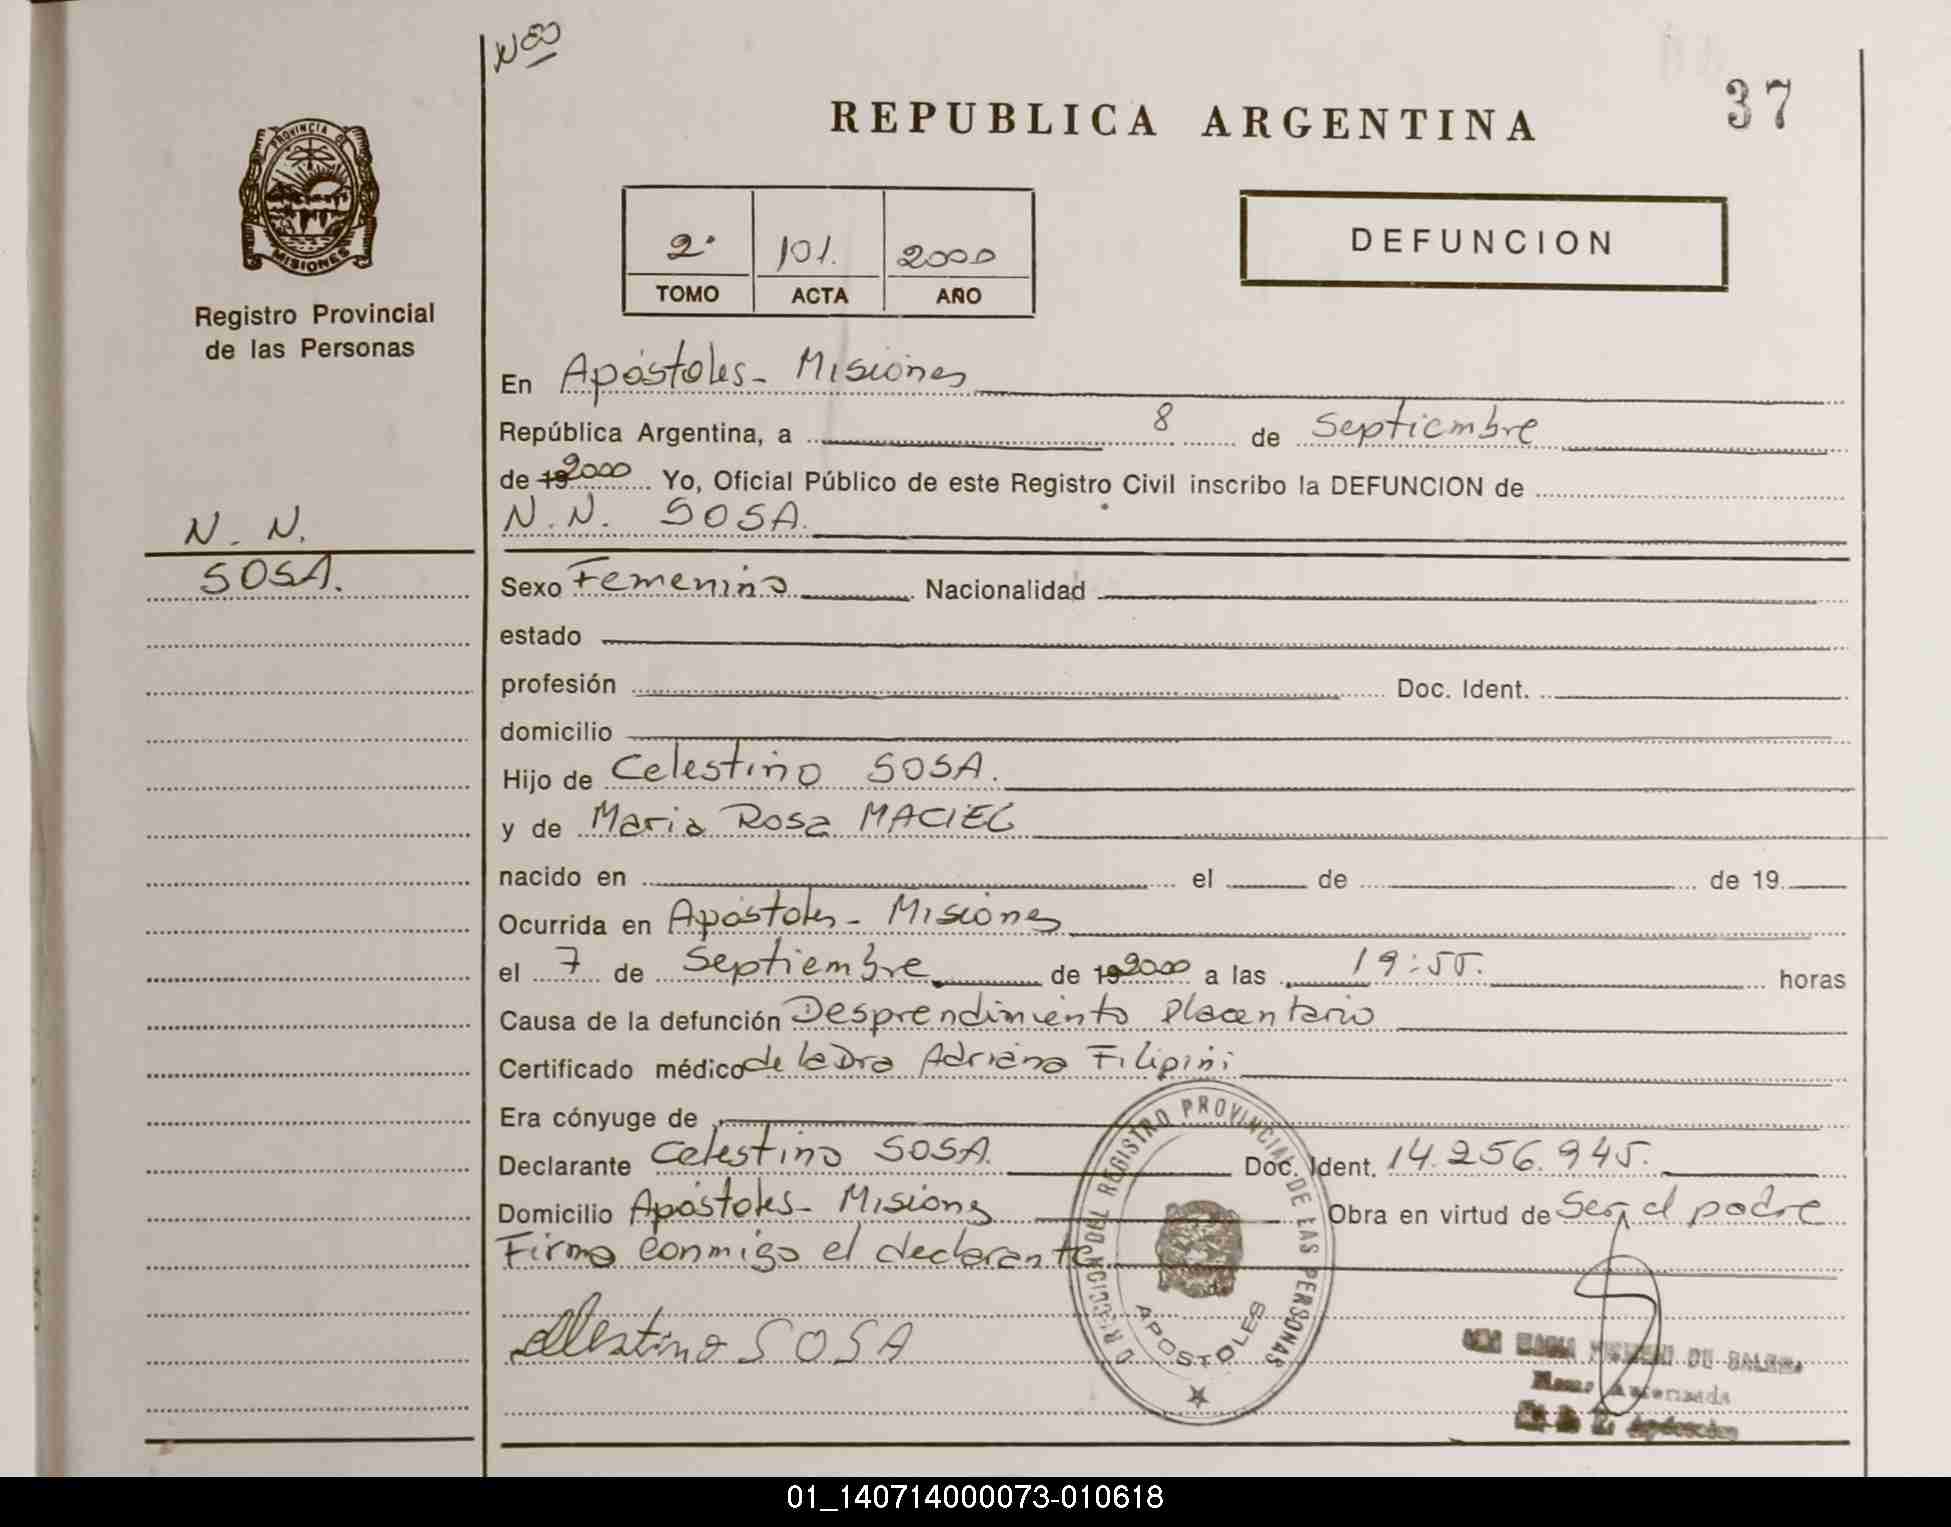 37
REPUBLICA ARGENTINA
PROVINCIA DE
MISIONES
Registro Provincial
de las Personas
2º 101. 2000
TOMO ACTA AÑO
DEFUNCION
En Apóstoles - Misiones
República Argentina, a 8 de Septiembre
de 19 2000 Yo, Oficial Público de este Registro Civil inscribo la DEFUNCION de
N. N.
SOSA.
N. N. SOSA.
Sexo Femenino Nacionalidad
estado
profesión Doc. Ident.
domicilio
Hijo de Celestino SOSA.
y de Maria Rosa MACIEL
nacido en el de de 19
Ocurrida en Apóstoles - Misiones
el 7 de Septiembre de 19 2000 a las 19:55. horas
Causa de la defunción Desprendimiento Placentario
Certificado médico de la Dra Adriana Filipini
Era cónyuge de
Declarante Celestino SOSA. Doc. Ident. 14.256.945.
Domicilio Apóstoles - Misiones Obra en virtud de ser el padre
Firma conmigo el declarante
DIRECCION DEL REGISTRO PROVINCIAL DE LAS PERSONAS
APOSTOLES
Celestino SOSA
Autorizada
Apóstoles
01_140714000073-010618